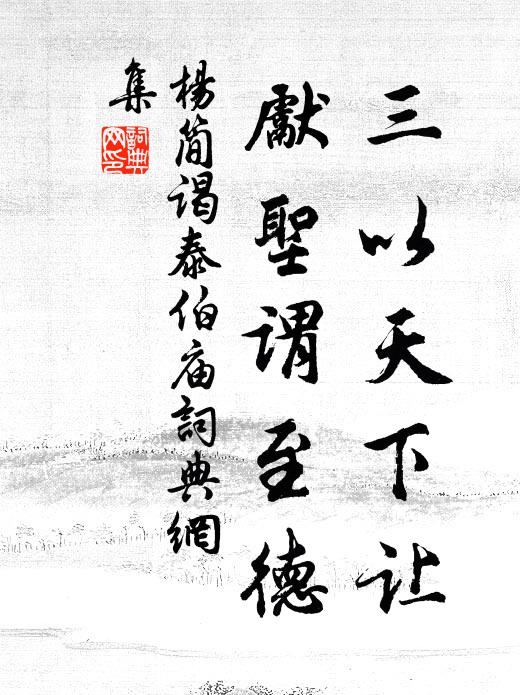 三以天下让
献聖谓至德
楊简谒泰伯庙詞典網
集
詞典
网印